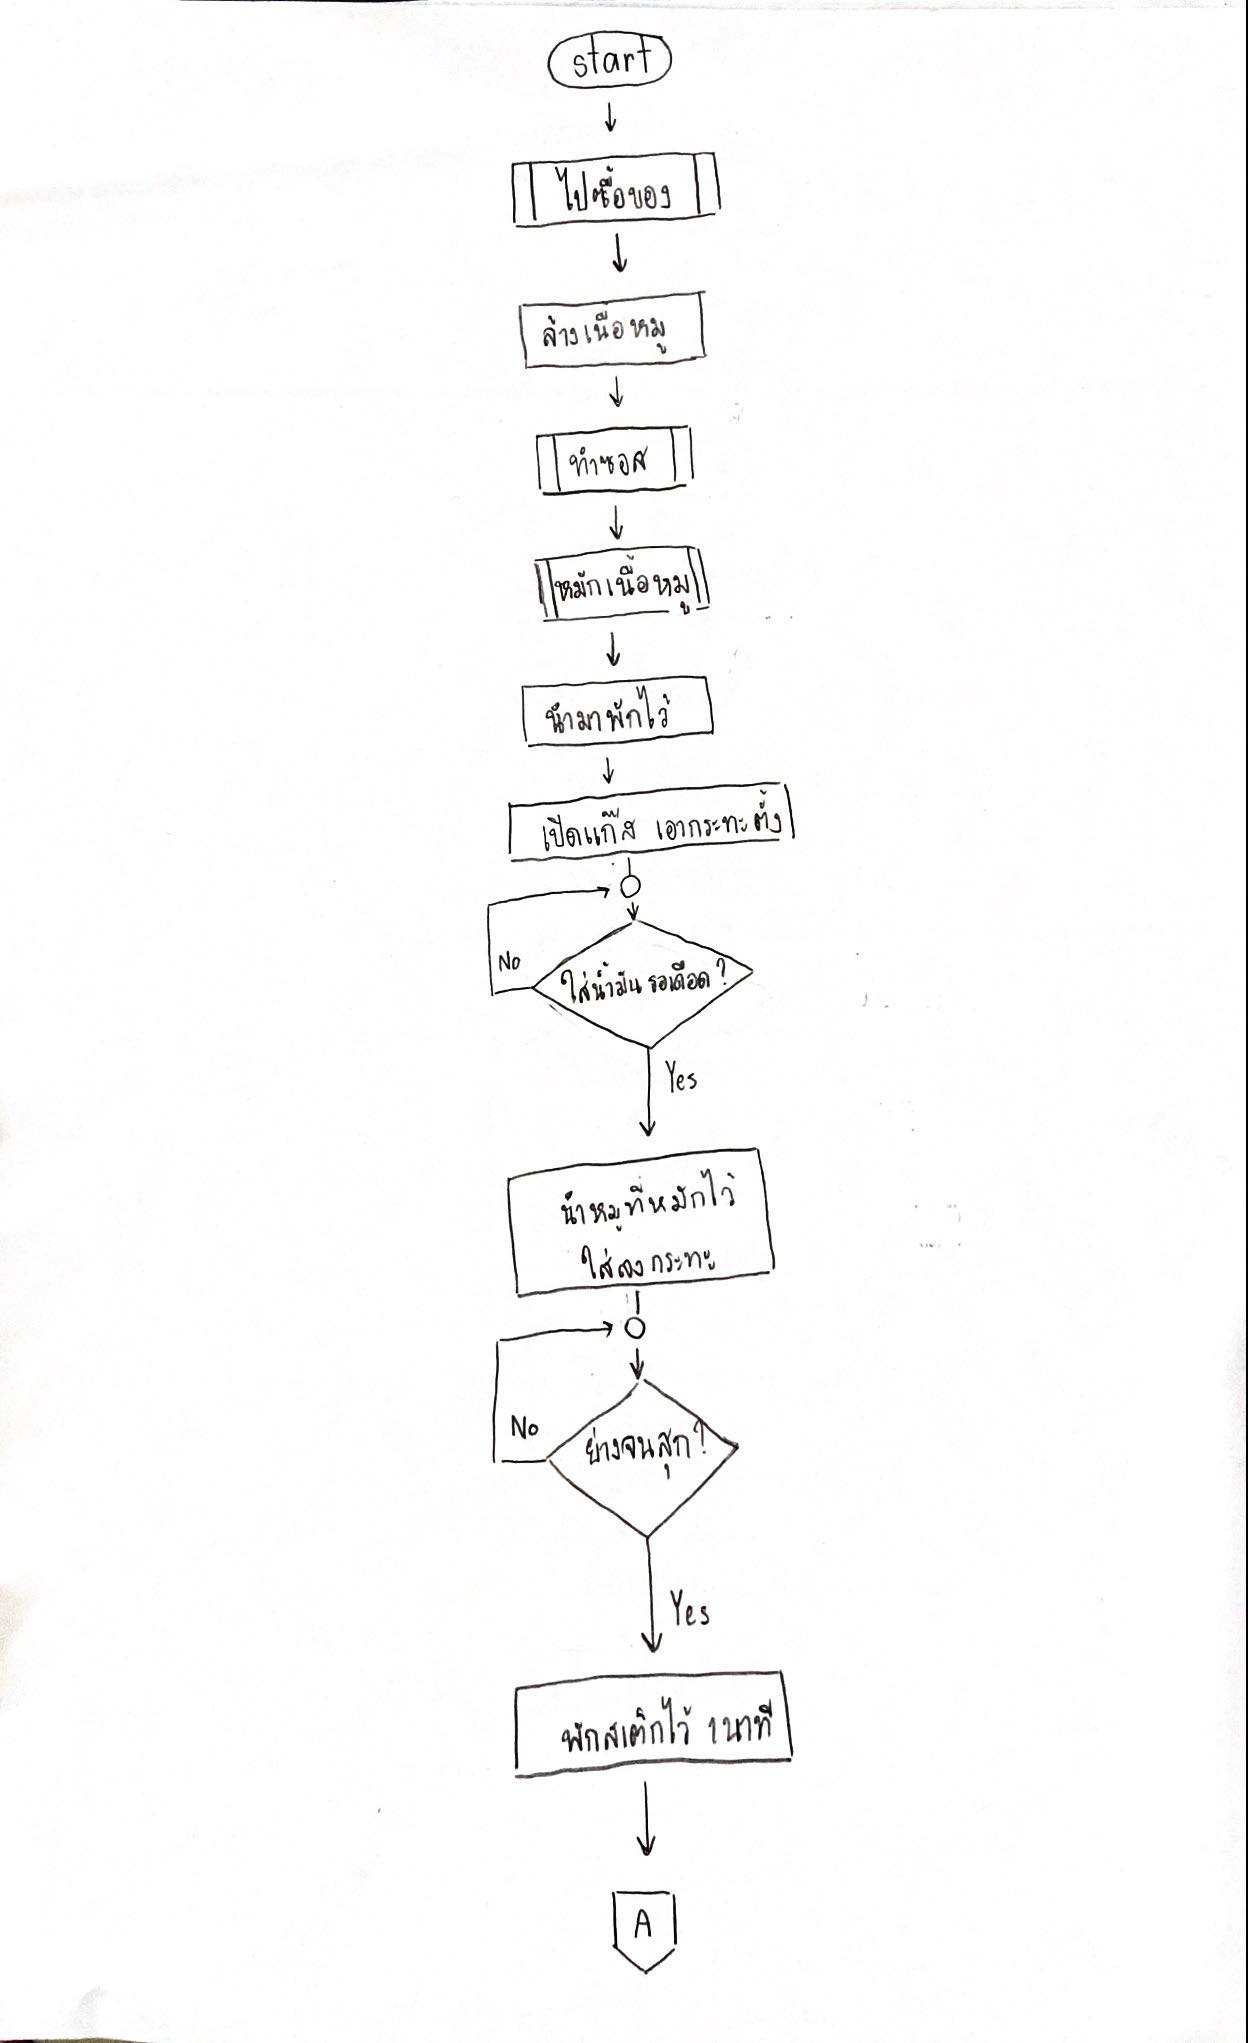 start
ไปซื้อของ
ล้างเนื้อหมู
ทำซอส
หมักเนื้อหมู
นำมาพักไว้
เปิดแก๊ส เอากระทะตั้ง
No
ใส่น้ำมัน รอเดือด?
Yes
นำหมูที่หมักไว้
ใส่ลงกระทะ
No
ย่างจนสุก?
Yes
พักสเต็กไว้ 1นาที
A